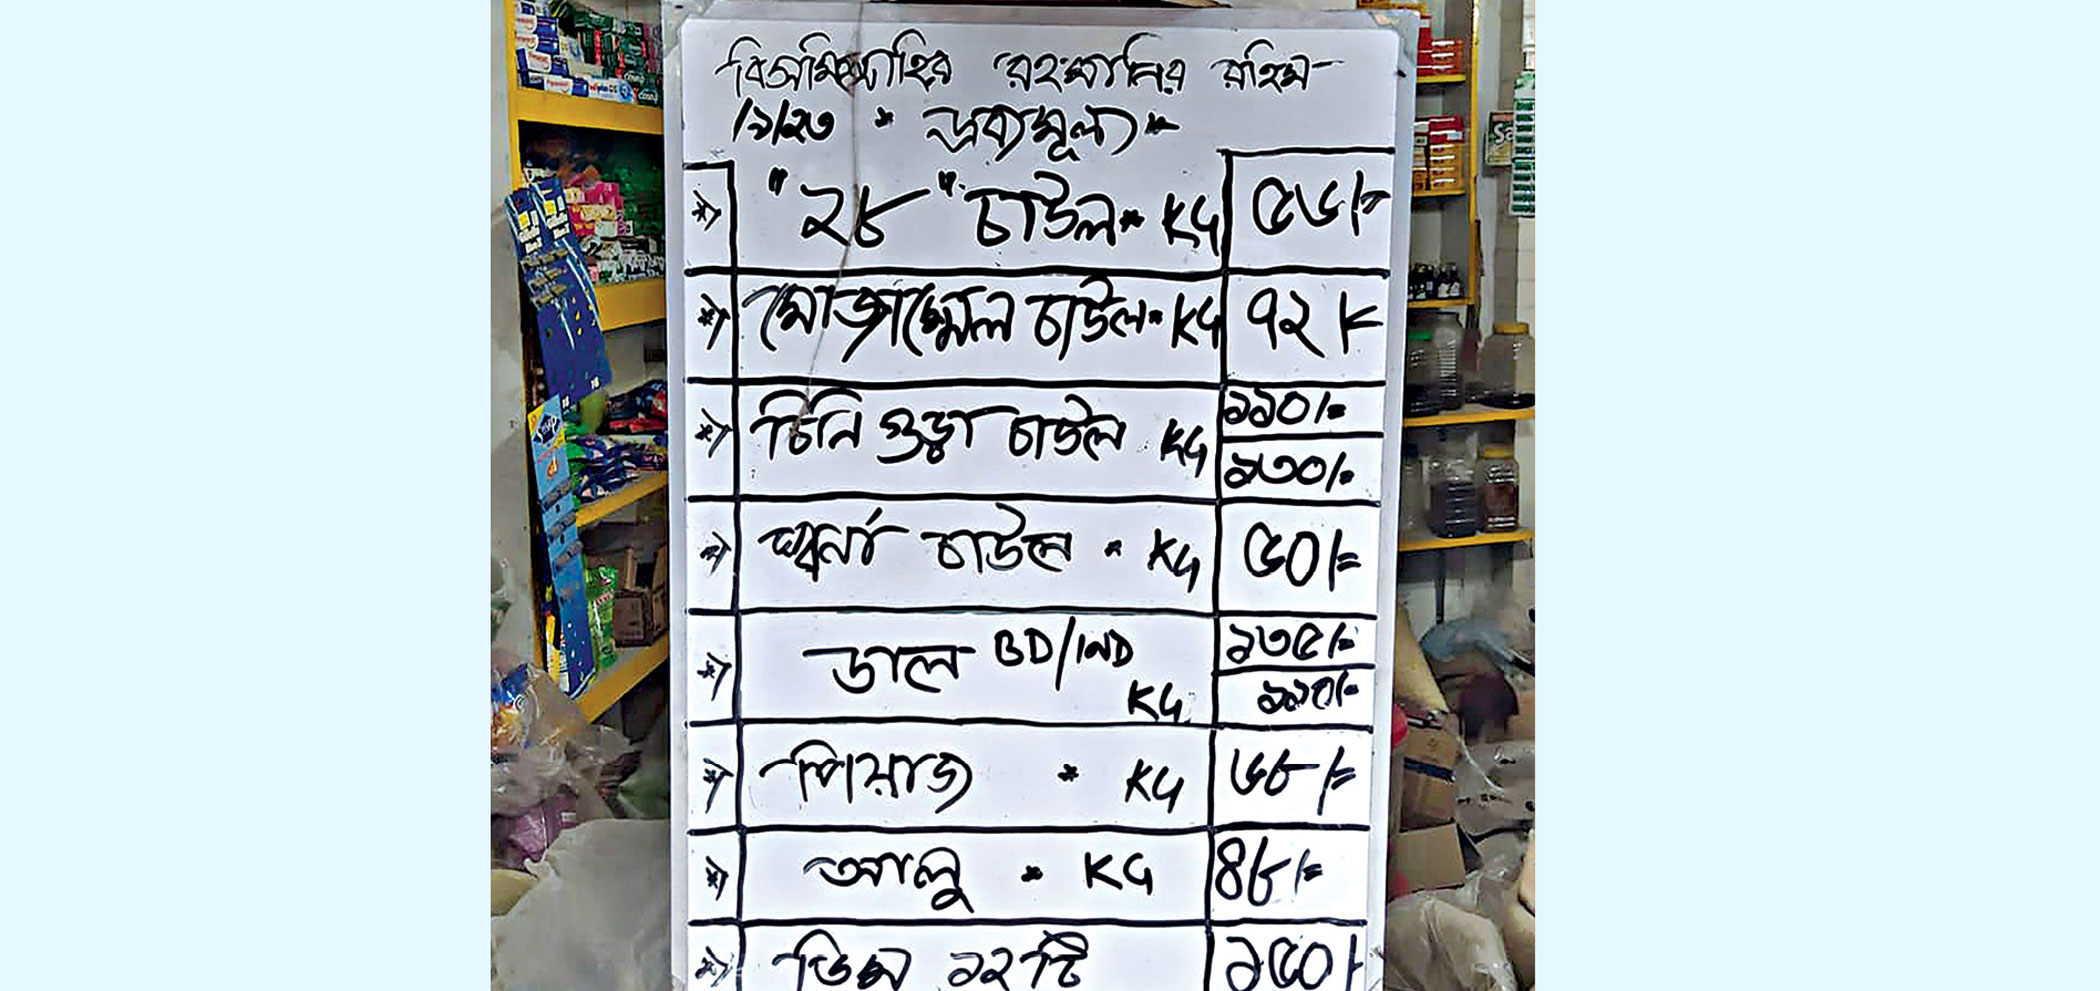 বিসমিল্লাহির রহমানির রহিম
/৯/২৩ * দ্রব্যমূল্য *
"২৮" চাউল * KG ৫৬/=
মোজাম্মেল চাউল * KG ৭২/=
চিনি গুড়া চাউল KG ১১০/=
১৩০/=
স্বর্না চাউল * KG ৫০/=
ডাল BD/IND KG ১৩৫/=
১১০/=
পিয়াজ * KG ৬৮/=
আলু * KG ৪৮/=
ডিম ১২টি ১৫০/